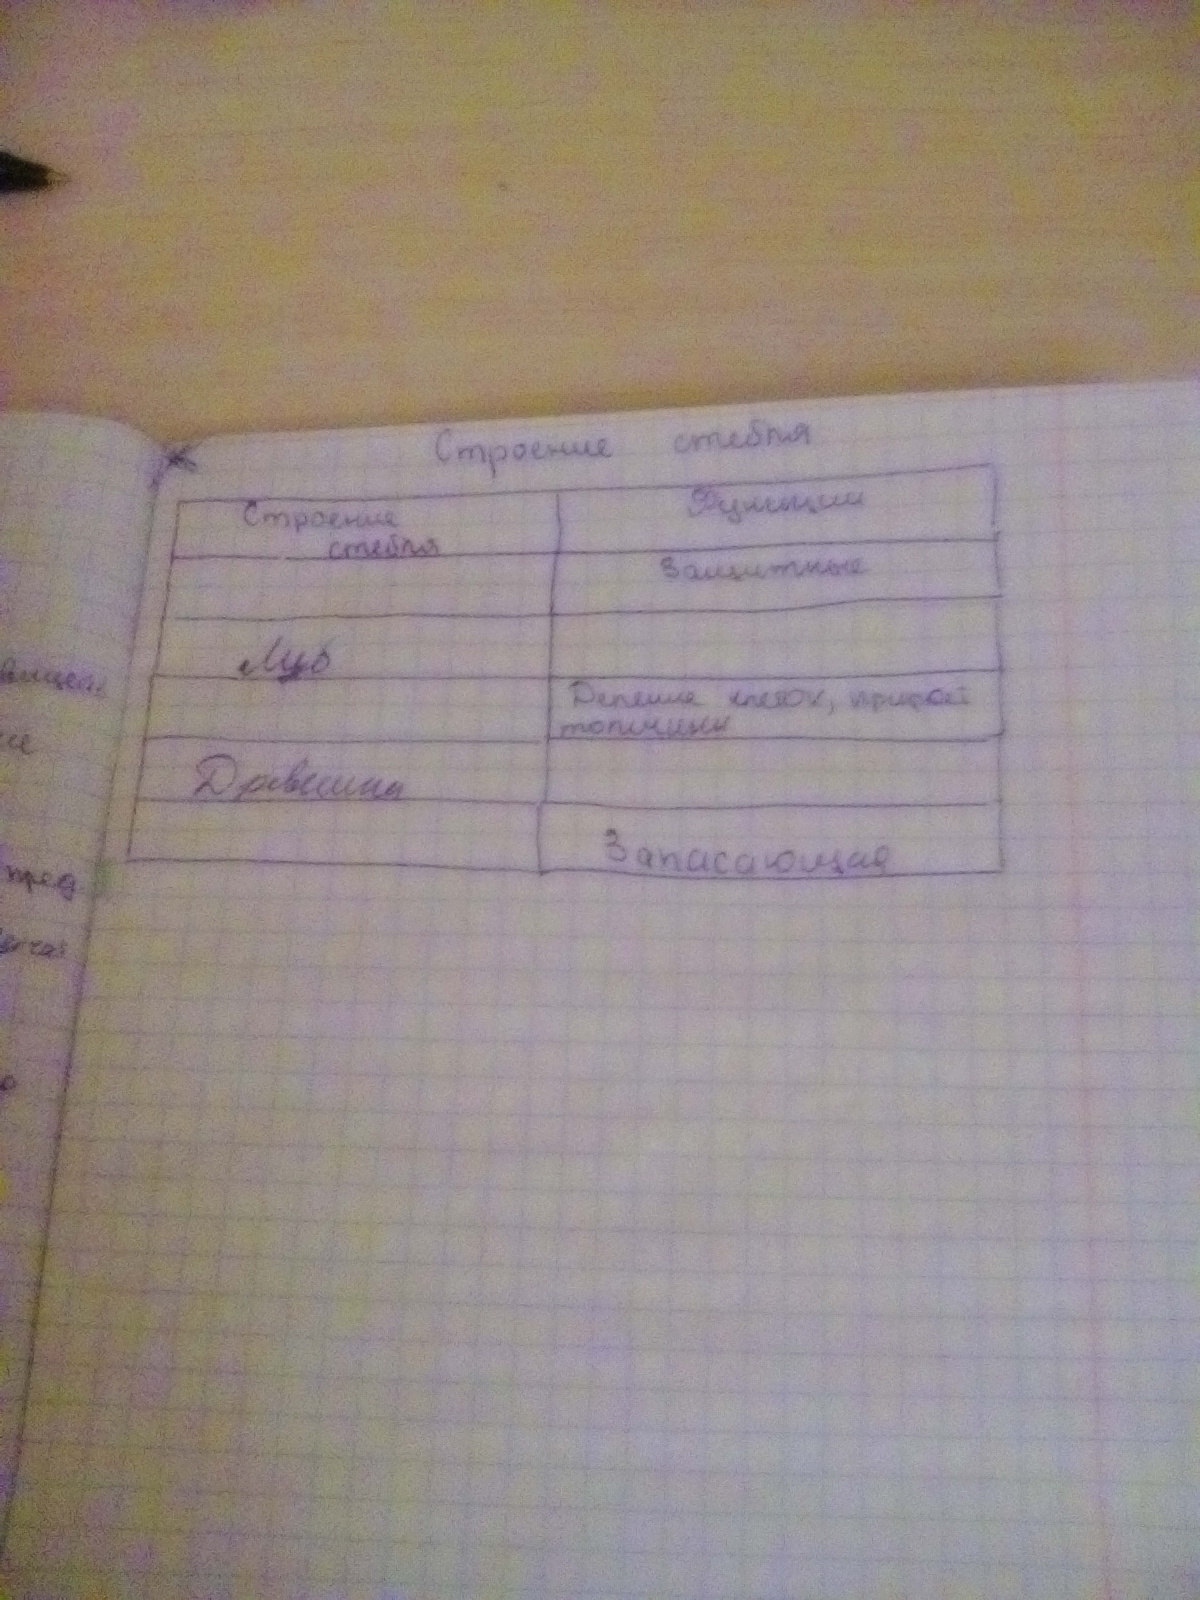 Строение стебля
Строение
стебля
Функции
Защитные
Луб
Деление клеток, прирост
толщины
Древесина
Запасающая
пред